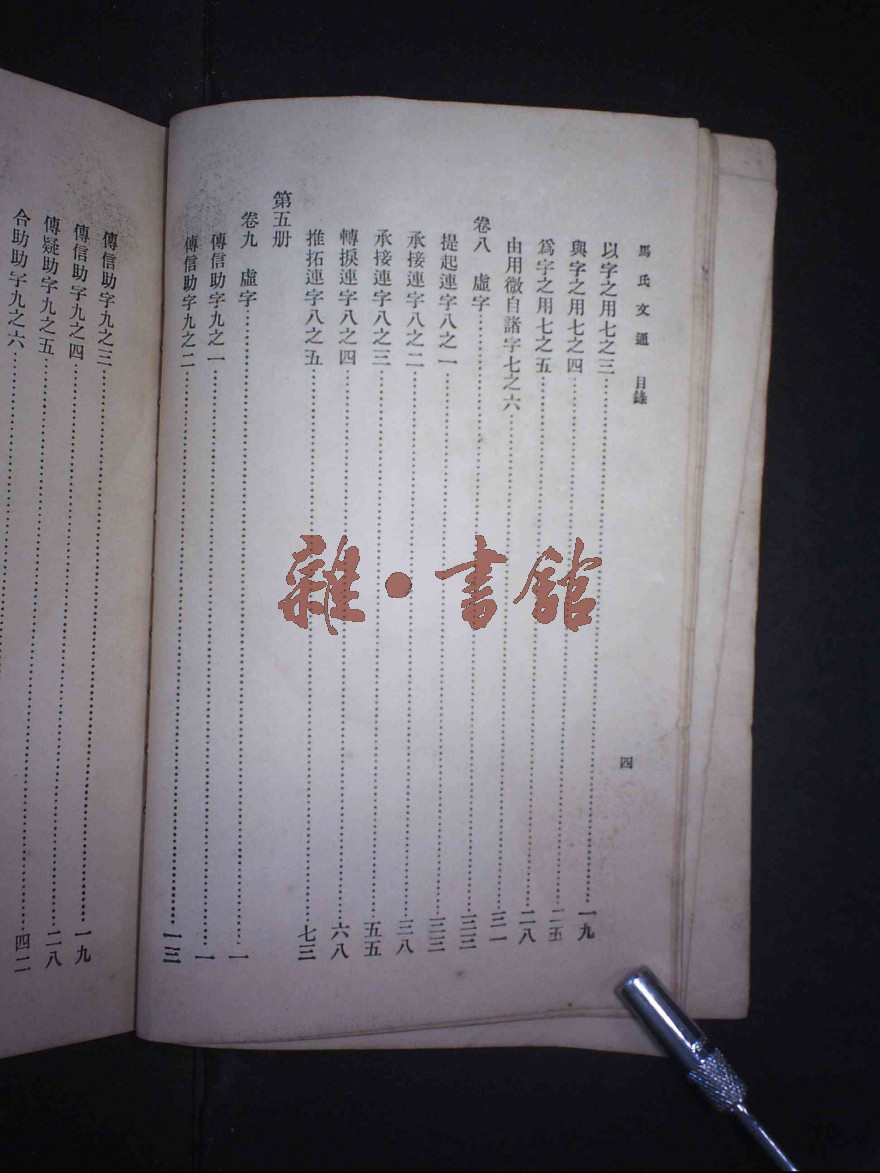 馬氏文通 目錄
四
以字之用七之三 一九
與字之用七之四 二五
爲字之用七之五 二八
由用微自諸字七之六 三一
卷八 虛字 三三
提起連字八之一 三三
承接連字八之二 三八
承接連字八之三 五五
轉捩連字八之四 六八
推拓連字八之五 七三
第五册
卷九 虛字 一
傳信助字九之一 一
傳信助字九之二 一三
傳信助字九之三 一九
傳信助字九之四 二八
傳疑助字九之五 四二
合助助字九之六
雜·書館